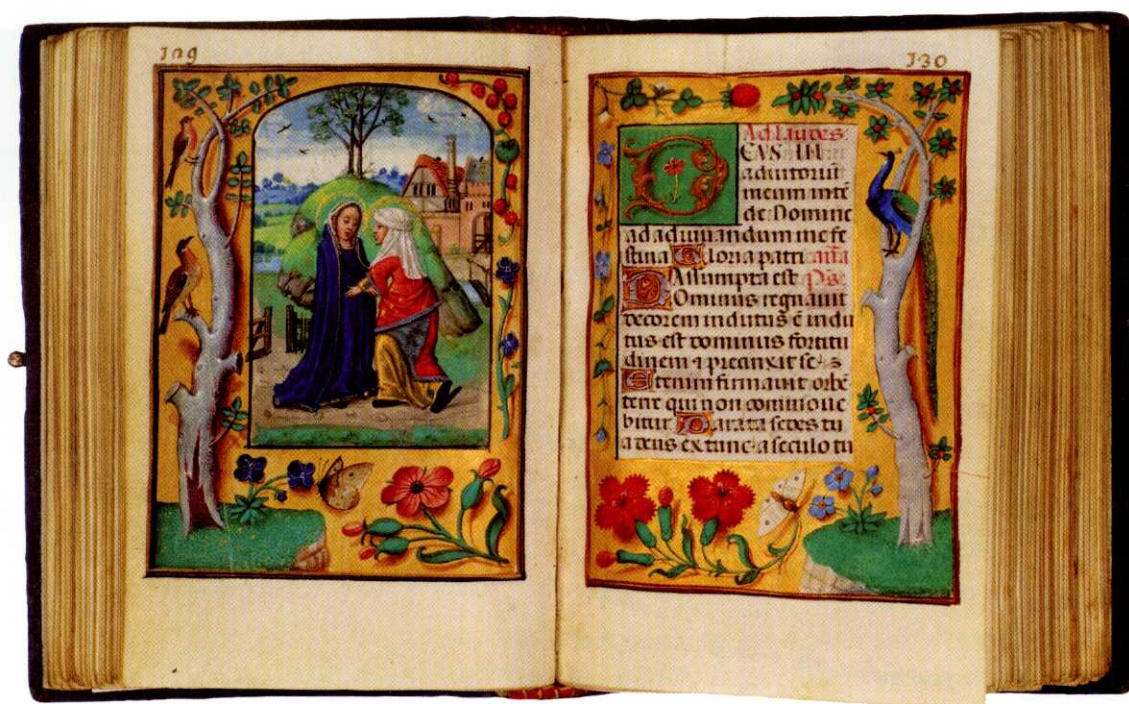 109
130
Ad Laudes:
EVS IN
adiutoriū
meum intē
de: Domine
ad adiuuandum me fe
stina Gloria patri aña
Assumpta est Ps.
Ominus regnauit
decorem indutus ē indu
tus est dominus fortitu
dinem ⁊ precinxit se
Etenim firmauit orbē
terre qui non commoue
bitur Parata sedes tu
a deus ex tunc a seculo tu